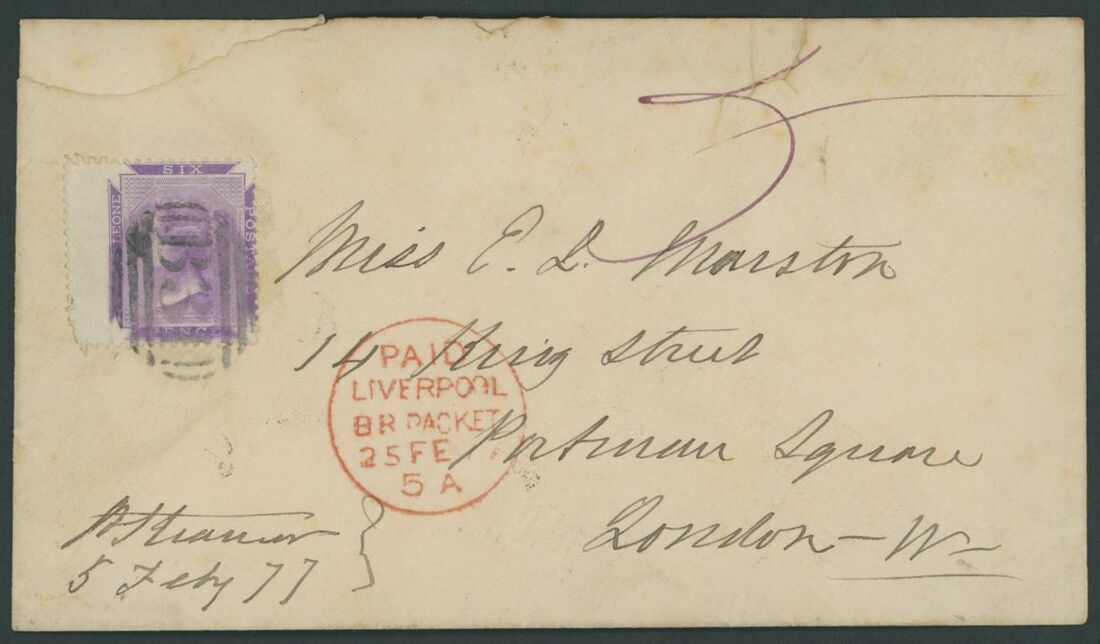 SIX
LEONE
POST
PENCE
B31
5
Miss E. L. Marston
14 King Street
Portman Square
London - W -
PAID
LIVERPOOL
BR PACKET
25 FE
5 A
Steamer
5 Feby 77